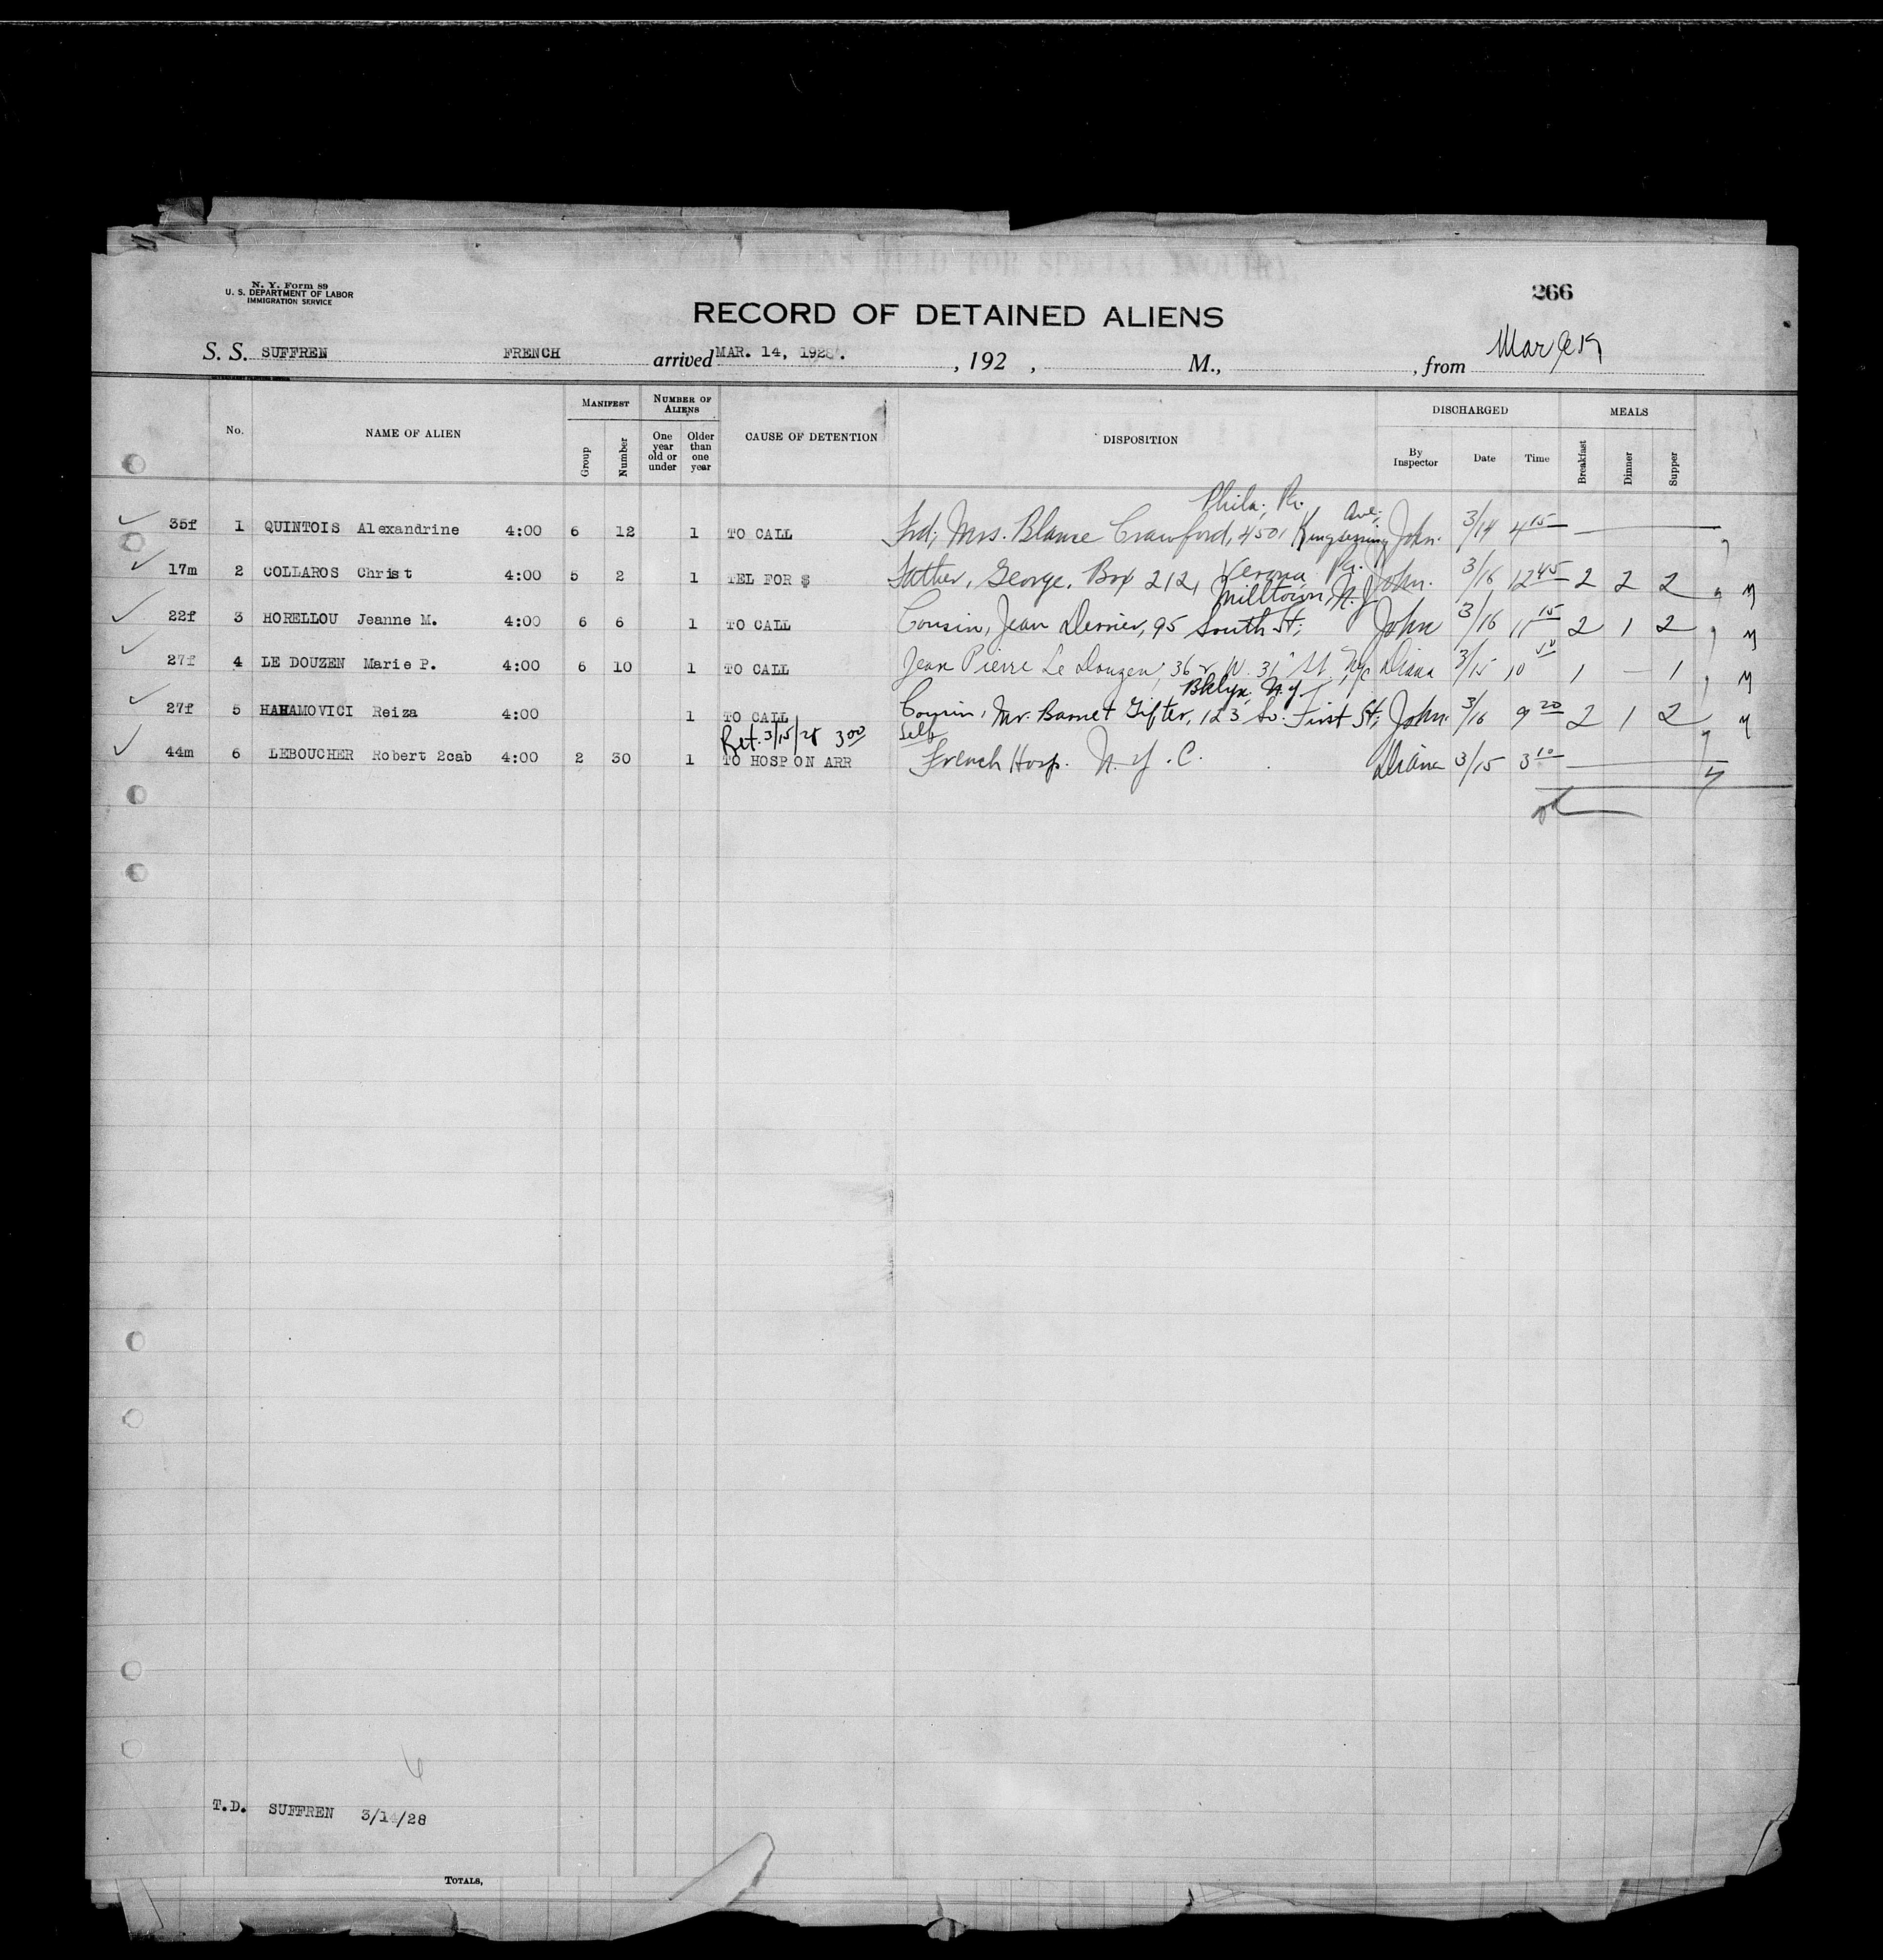 N. Y. Form 89
U. S. DEPARTMENT OF LABOR
IMMIGRATION SERVICE
266
RECORD OF DETAINED ALIENS
S. S. SUFFREN FRENCH arrived MAR. 14, 1928. , 192 , M., from
No. NAME OF ALIEN MANIFEST Group Number NUMBER OF ALIENS One year old or under Older than one year CAUSE OF DETENTION DISPOSITION DISCHARGED By Inspector Date Time MEALS Breakfast Dinner Supper
Phila; Pa.
35f 1 QUINTOIS Alexandrine 4:00 6 12 1 TO CALL Frd; Mrs. Blanse Crawford, 4501 Kingsessing Ave; John. 3/14 4 15
17m 2 COLLAROS Christ 4:00 5 2 1 TEL FOR $ Father, George, Box 212, Verona, Pa. John. 3/16 12 45 2 2 2
Milltown, N. J
22f 3 HORELLOU Jeanne M. 4:00 6 6 1 TO CALL Cousin, Jean 95 South St; John 3/16 11 15 2 1 2
27f 4 LE DOUZEN Marie P. 4:00 6 10 1 TO CALL Jean Pierre Le Douzen; W. 31" St. Nyc Diana 3/15 10 1 — 1
Bklyn. N. Y
27f 5 HAHAMOVICI Reiza 4:00 1 TO CALL Cousin, Mr. Barnet Gifter, 123 So. First St; John. 3/16 9 20 2 1 2
Ret. 3/15/28 3 00 Self
44m 6 LEBOUCHER Robert 2cab 4:00 2 30 1 TO HOSP ON ARR French Hosp. N. Y. C. Diana 3/15 3 10
T.D. SUFFREN 3/14/28
TOTALS,